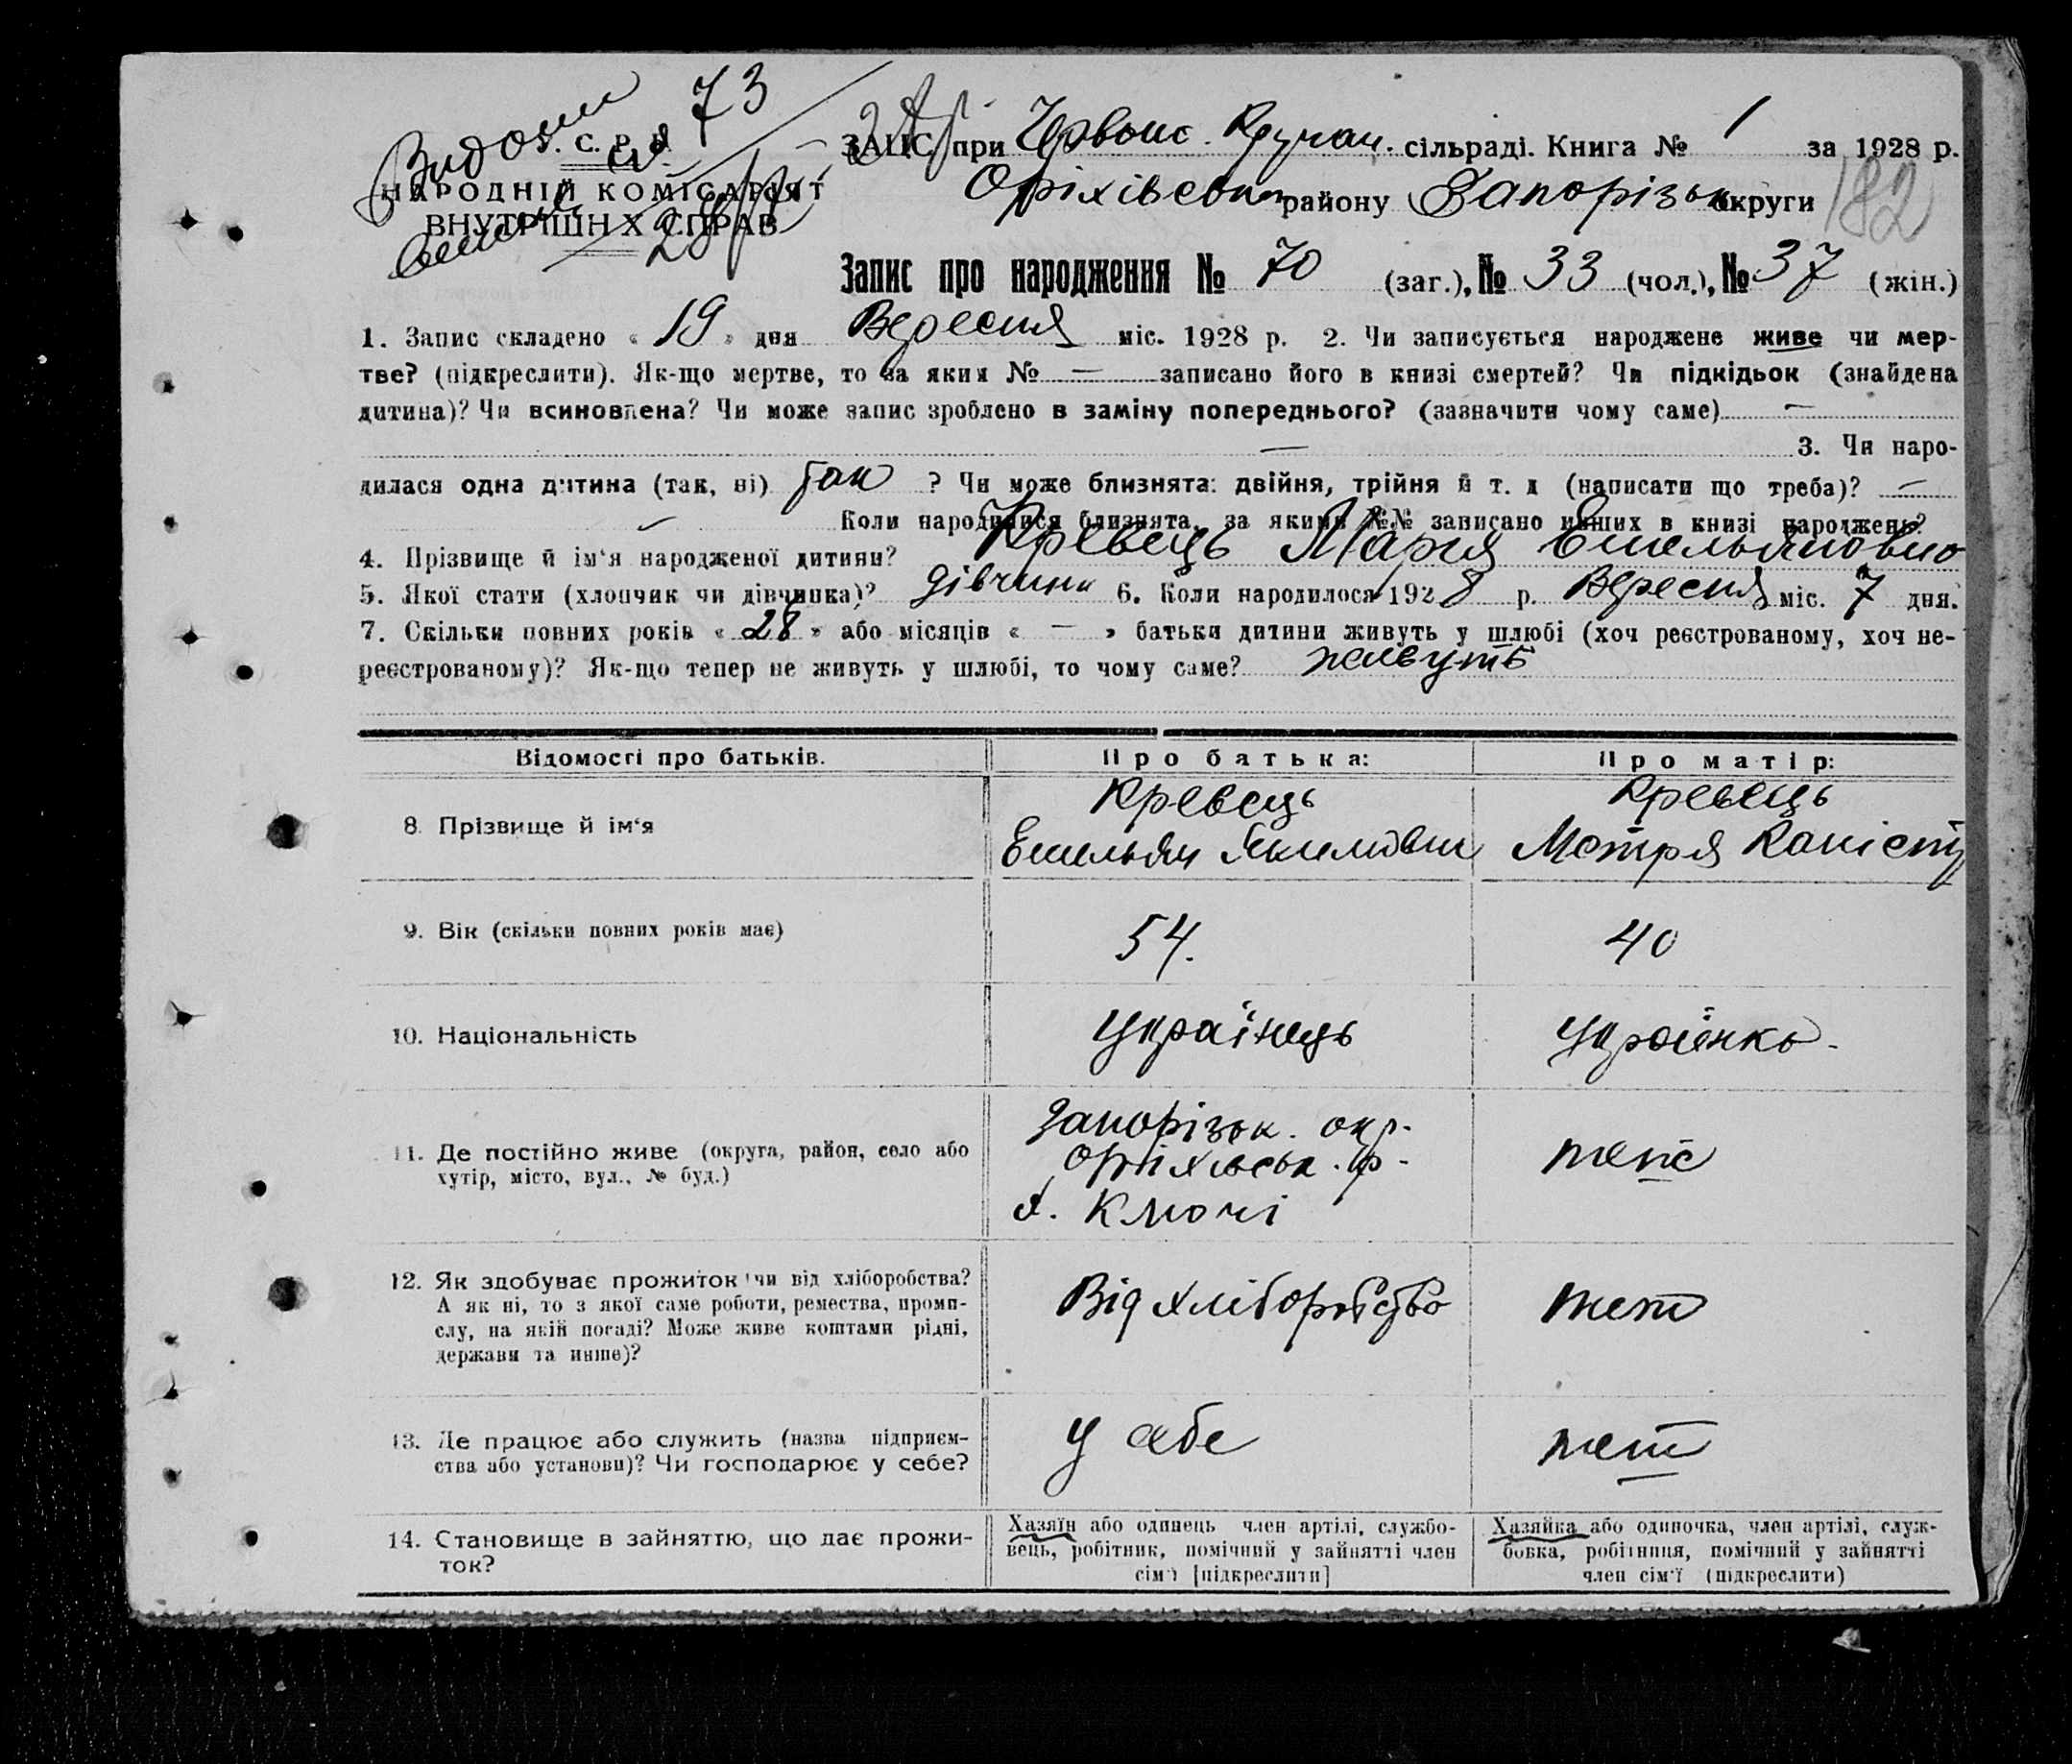 Видом
73
У. С. Р. Р.
НАРОДНІЙ КОМІСАРІЯТ
ВНУТРІШНІХ СПРАВ
ЗАЦС при Червоно Кручан. сільраді. Книга № 1 за 1928 р.
Оріхівськ району Запорізьк округи
182
Запис про народження № 70 (заг.), № 33 (чол.), № 37 (жін.)
1. Запис складено « 19 » дня Вересня міс. 1928 р. 2. Чи записується народжене живе чи мер-
тве? (підкреслити). Як-що мертве, то за яким № — записано його в книзі смертей? Чи підкідьок (знайдена
дитина)? Чи всиновлена? Чи може запис зроблено в заміну попереднього? (зазначити чому саме) —
— 3. Чи наро-
дилася одна дитина (так, ні) так ? Чи може близнята: двійня, трійня й т. д (написати що треба)? —
— Коли народилися близнята, за якими №№ записано инших в книзі народжень?
4. Прізвище й ім'я народженої дитини? Кревець Мария Емельяновно
5. Якої стати (хлопчик чи дівчинка)? дівчинк 6. Коли народилося 1928 р. Вересня міс. 7 дня.
7. Скільки повних років « 28 » або місяців « — » батьки дитини живуть у шлюбі (хоч реєстрованому, хоч не-
реєстрованому)? Як-що тепер не живуть у шлюбі, то чому саме? живуть
Відомості про батьків.
Про батька:
Про матір:
8. Прізвище й ім'я
Кревець
Емельян Якимович
Кревець
Мотря
9. Вік (скільки повних років має)
54.
40
10. Національність
Українець
Українка.
11. Де постійно живе (округа, район, село або
хутір, місто, вул., № буд.)
Запорізьк. окр.
Оріхівськ. р.
х. Ключі
теж
12. Як здобуває прожиток чи від хліборобства?
А як ні, то з якої саме роботи, ремества, промп-
слу, на якій посаді? Може живе коштами рідні,
держави та инше)?
Від хліборобство
теж
13. Де працює або служить (назва підприєм-
ства або установи)? Чи господарює у себе?
У себе
теж
14. Становище в зайняттю, що дає прожи-
ток?
Хазяїн або одинець член артілі, службо-
вець, робітник, помічний у зайнятті член
сім'ї [підкреслити]
Хазяйка або одиночка, член артілі, служ-
бовка, робітниця, помічний у зайнятті
член сім'ї (підкреслити)